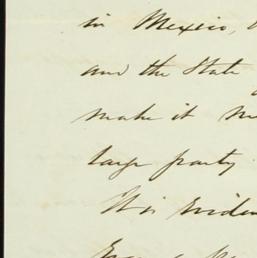 in Mexico,
and the State
make it
large party
It is